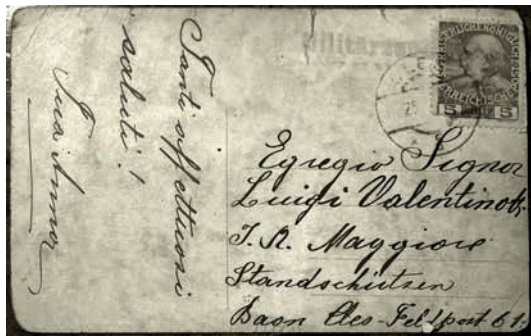 Tanti affettuosi
saluti!
Tua Anna
Egregio Signor
Luigi Valentinotti
I. R. Maggiore
Standschützen
Baon Cles-Feldpost 61
5 5